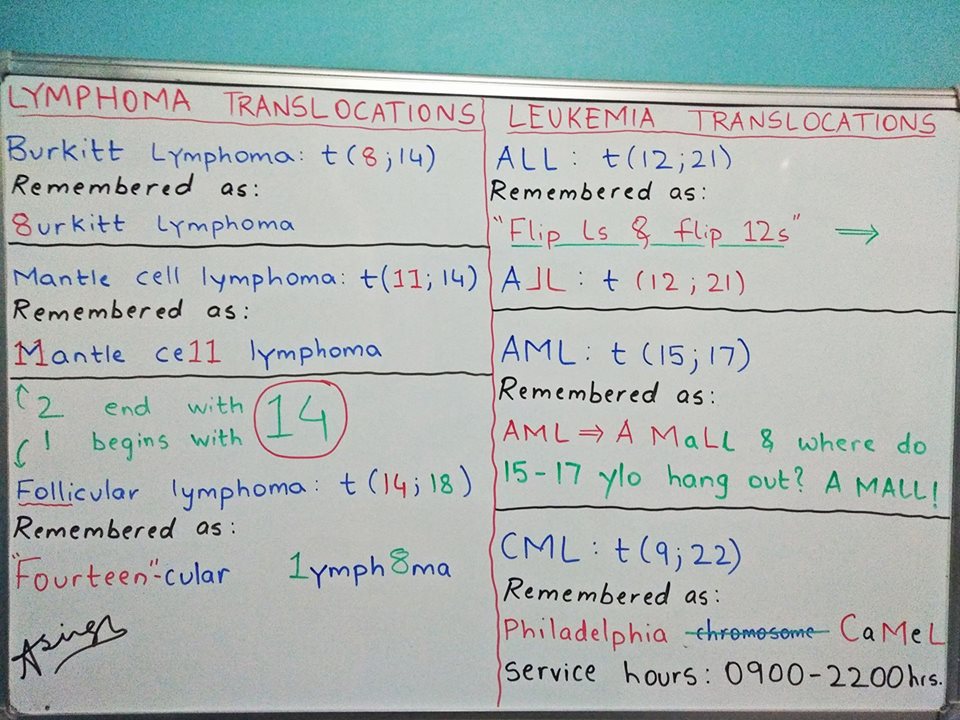 LYMPHOMA TRANSLOCATIONS
Burkitt Lymphoma: t(8;14)
Remembered as:
8urkitt lymphoma
Mantle cell lymphoma: t(11;14)
Remembered as:
Mantle ce11 lymphoma
2 end with 14
1 begins with
Follicular lymphoma: t(14;18)
Remembered as:
"Fourteen"-cular 1ymph8ma
LEUKEMIA TRANSLOCATIONS
ALL: t(12;21)
Remembered as:
"Flip Ls & flip 12s" ⇒
A⅃L: t (12; 21)
AML: t (15;17)
Remembered as:
AML ⇒ A MaLL & where do
15-17 y/o hang out? A MALL!
CML: t(9;22)
Remembered as:
Philadelphia chromosome CaMeL
service hours: 0900-2200hrs.